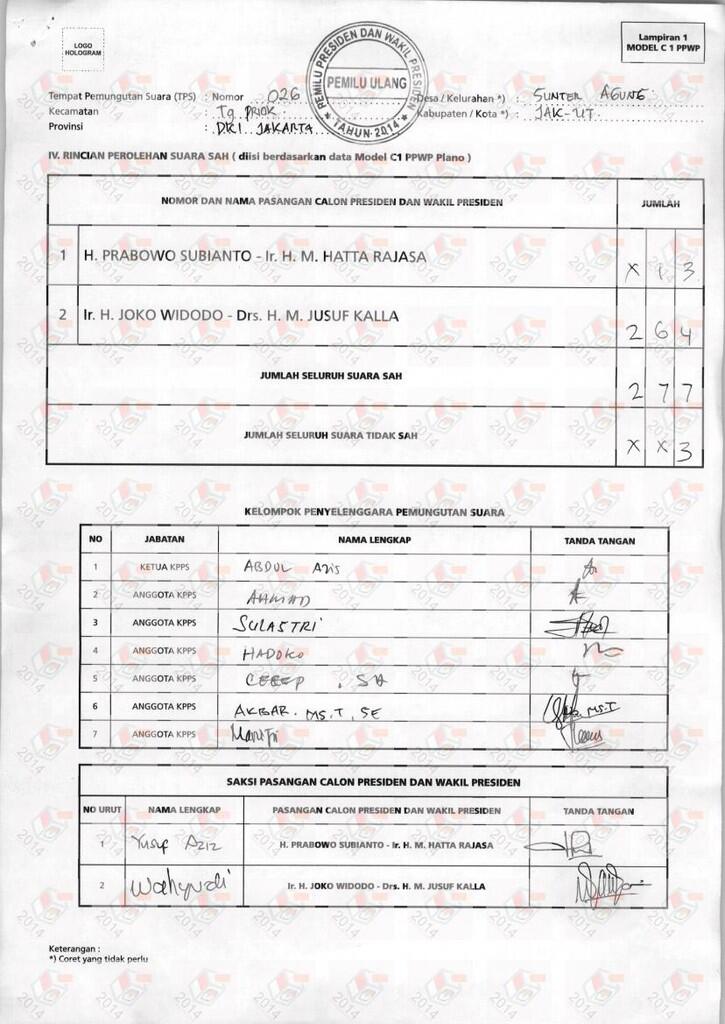 LOGO
HOLOGRAM
PEMILU PRESIDEN DAN WAKIL PRESIDEN
PEMILU ULANG
* TAHUN 2014 *
Lampiran 1
MODEL C 1 PPWP
Tempat Pemungutan Suara (TPS) : Nomor 026 Desa / Kelurahan *) : SUNTER AGUNG
Kecamatan : Tg PRIOK Kabupaten / Kota *) : JAK-UT
Provinsi : DKI JAKARTA
IV. RINCIAN PEROLEHAN SUARA SAH ( diisi berdasarkan data Model C1 PPWP Plano )
NOMOR DAN NAMA PASANGAN CALON PRESIDEN DAN WAKIL PRESIDEN JUMLAH
1 H. PRABOWO SUBIANTO - Ir. H. M. HATTA RAJASA X 1 3
2 Ir. H. JOKO WIDODO - Drs. H. M. JUSUF KALLA 2 6 4
JUMLAH SELURUH SUARA SAH 2 7 7
JUMLAH SELURUH SUARA TIDAK SAH X X 3
KELOMPOK PENYELENGGARA PEMUNGUTAN SUARA
NO JABATAN NAMA LENGKAP TANDA TANGAN
1 KETUA KPPS ABDUL AZIS
2 ANGGOTA KPPS AHMAD
3 ANGGOTA KPPS SULASTRI
4 ANGGOTA KPPS HADOKO
5 ANGGOTA KPPS
6 ANGGOTA KPPS AKBAR. MS.T, SE
7 ANGGOTA KPPS
SAKSI PASANGAN CALON PRESIDEN DAN WAKIL PRESIDEN
NO URUT NAMA LENGKAP PASANGAN CALON PRESIDEN DAN WAKIL PRESIDEN TANDA TANGAN
1 Yusuf AZIZ H. PRABOWO SUBIANTO - Ir. H. M. HATTA RAJASA
2 Wahyudi Ir. H. JOKO WIDODO - Drs. H. M. JUSUF KALLA
Keterangan :
*) Coret yang tidak perlu